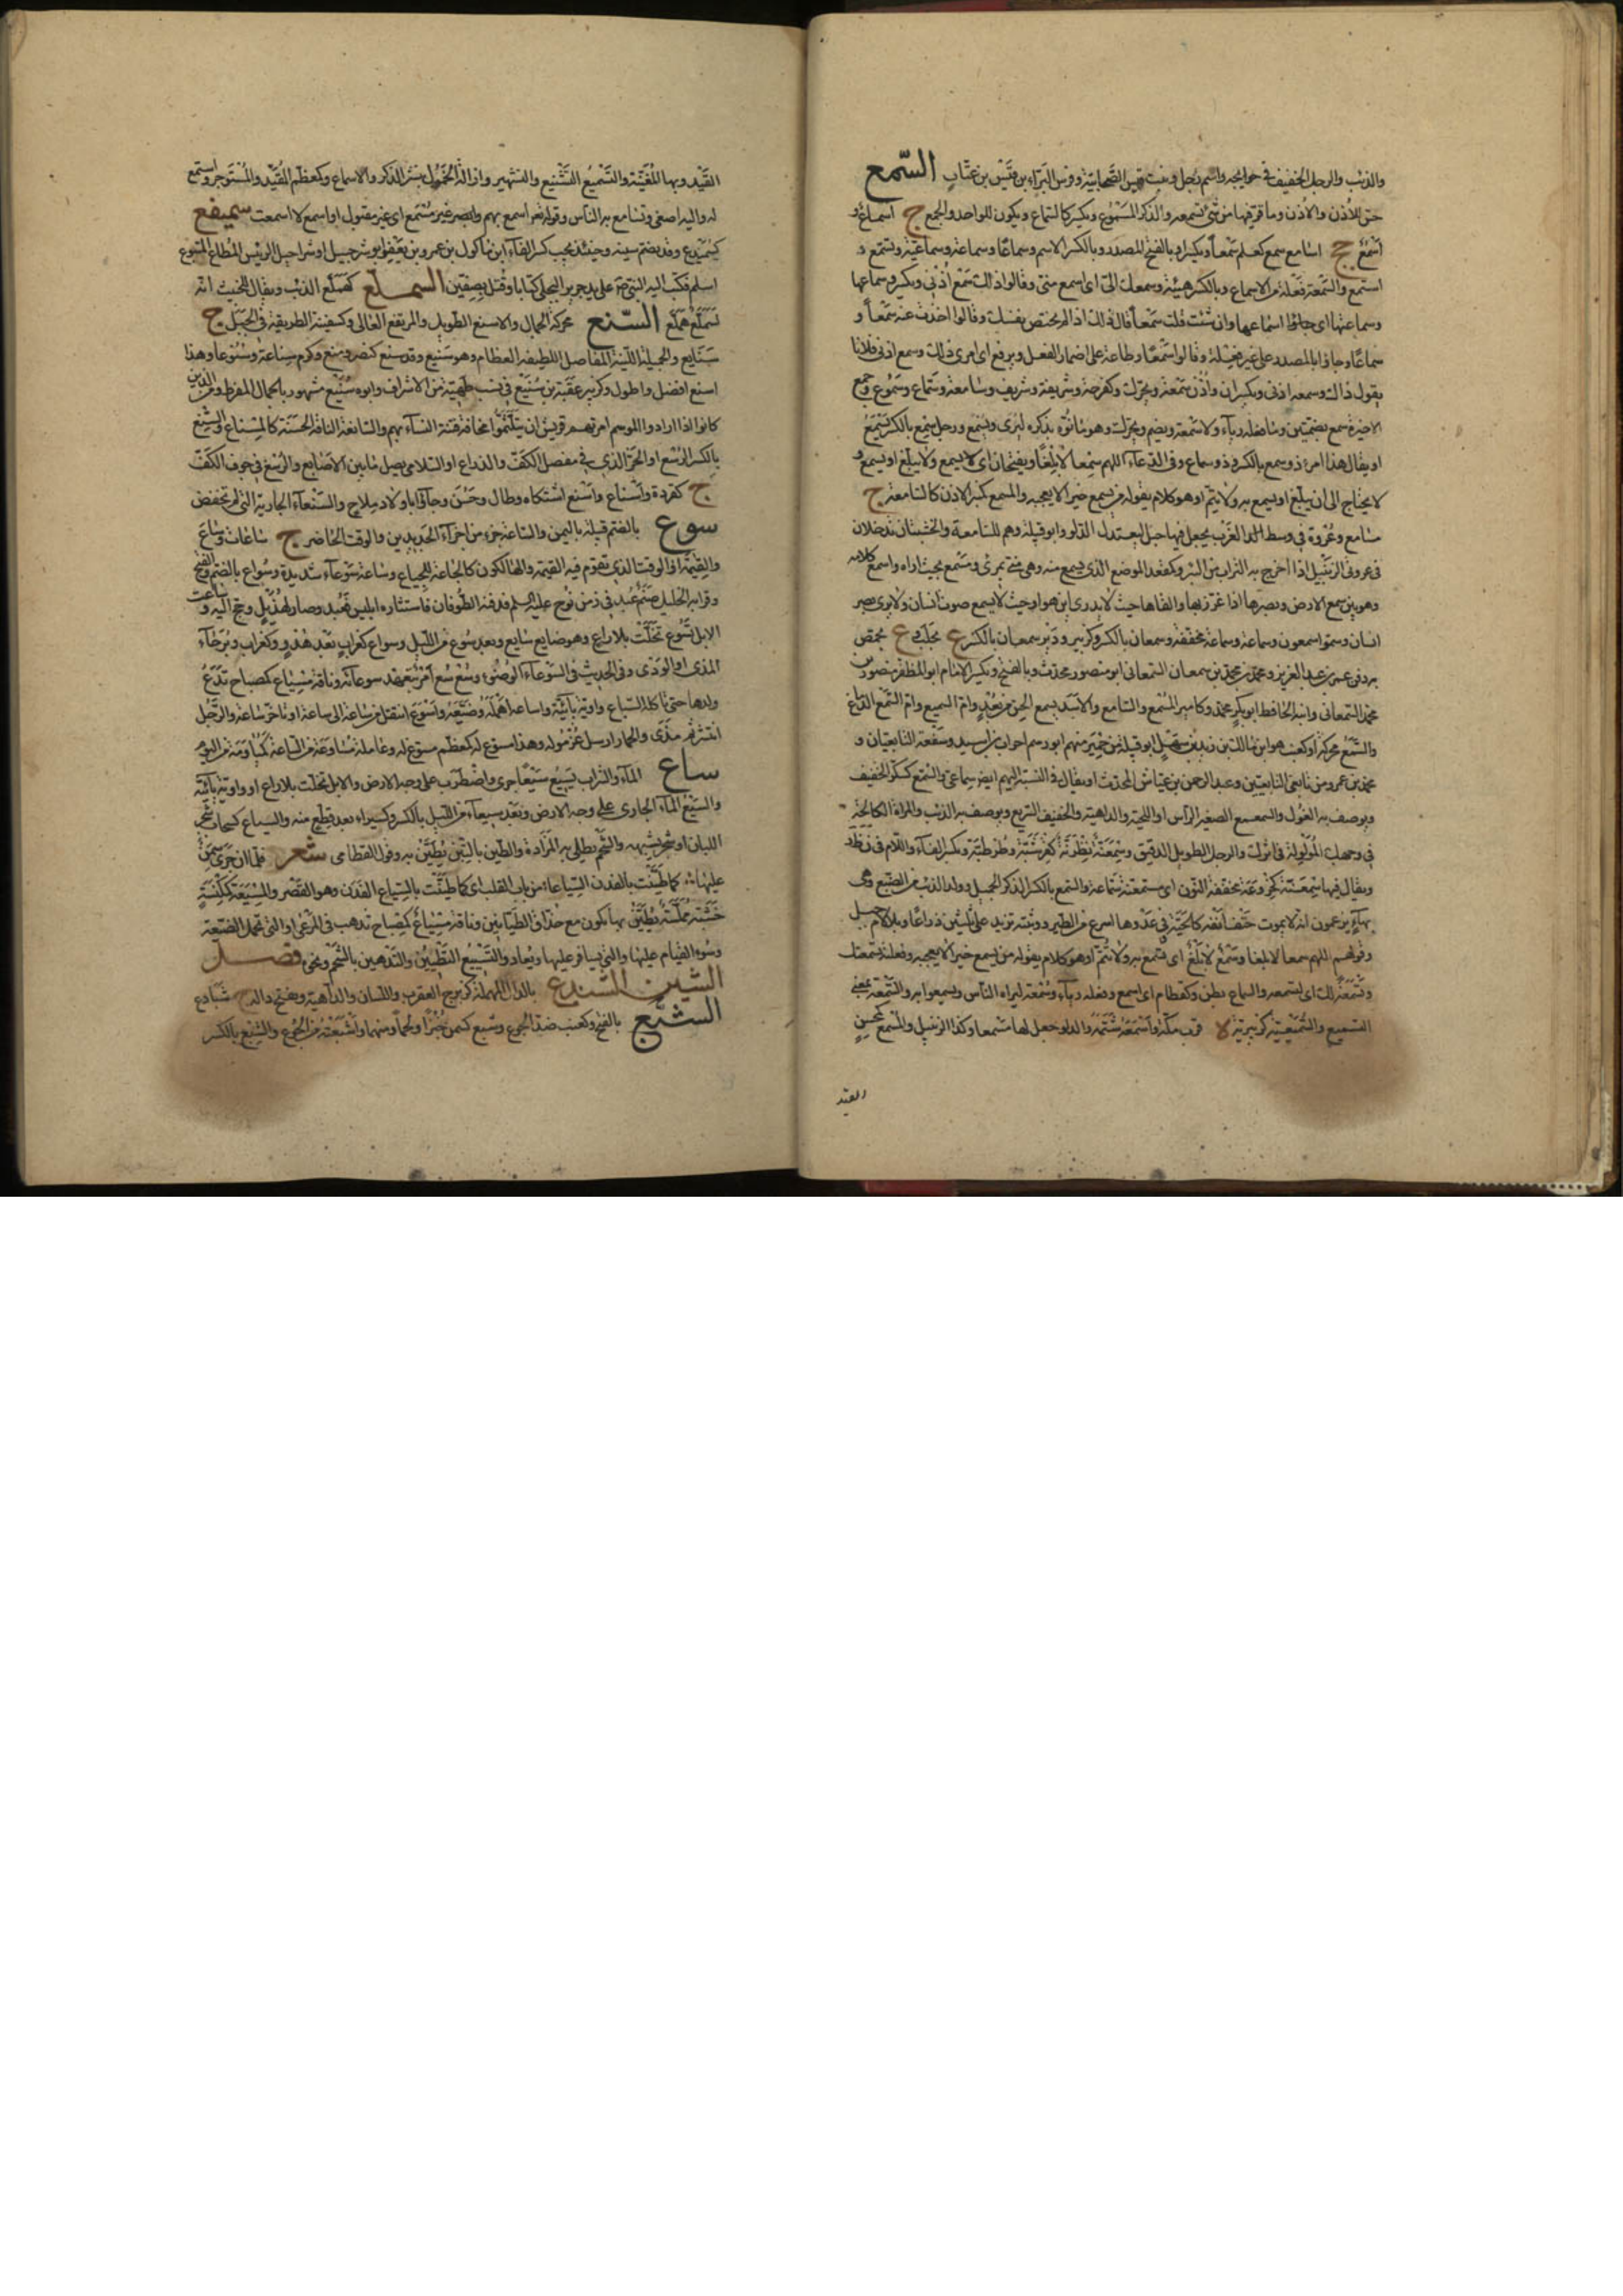 والذئب والرجل الخفيف في حوايجه واسم رجل وبنت قيس الصحابية وفرس البراء بن قيس بن عتاب السّمع
حس الأذن والأذن وما وقر فيها من شئ تسمعه والذكر المسموع ويكسر كالسماع ويكون للواحد والجمع ج اسماع و
أسمع جج اسامع سمع كعلم سمعا ويكسر او بالفتح المصدر وبالكسر الاسم وسماعا وسماعة وسماعية وتسمع و
استمع والسمعة فعلة من الاسماع وبالكسر هيئة وسمعك الىّ اى اسمع منى وقالوا ذلك سمع أذنى ويكسر وسماعها
وسماعتها اى اسماعها وان شئت قلت سمعا قال ذلك اذا لم يختص نفسك وقالوا اخذت عنه سمعا و
سماعا جاؤا بالمصدر على غير فعله وقالوا سمعا وطاعة على اضمار الفعل ويرفع اى امرى ذلك وسمع اذنى فلانا
يقول ذلك وسمعه اذنى ويكسران واذن سمعة ويحرك وكفرحة وشريفة وشريف وسامعة وسماع وسموع وجمع
الاخيرة سمع بضمتين وما فعله رياء ولا سمعة ويضم ويحرك وهو ما نوه بذكره ليرى ويسمع ورجل سمع بالكسر يسمع
او يقال هذا امرؤ ذو سمع بالكسر وذو سماع وفى الدعاء اللهم سمعا لا بلغا ويفتحان اى لا يسمع ولا يبلغ او يسمع و
لا يحتاج الى ان يبلغ او يسمع به ولا يتم او هو كلام يقوله من يسمع خبرا لا يعجبه والمسمع كمنبر الاذن كالسامعة ج
مسامع وعروة في وسط الغرب يجعل فيها حبل ليعتدل الدلو وابو قبيلة وهم المسامعة والخشبتان تدخلان
في عروتى الزنبيل اذا اخرج به التراب من البئر وكمقعد الموضع الذى يسمع منه وهو منى بمرأى ومسمع بحيث اراه واسمع كلامه
وهو بين سمع الارض وبصرها اذا غرر بها والقاها حيث لا يدرى اين هو او حيث لا يسمع صوت انسان ولا يرى بصر
انسان وسموا سمعون وسماعة وسماعة مخففة وسمعان بالكسر وكزبير ودير سمعان بالكسر ع بحلب و ع بحمص
به دفن عمر بن عبد العزيز ومحمد بن محمد بن سمعان السمعانى ابو منصور محدث وبالفتح ويكسر الامام ابو المظفر منصور بن
محمد السمعانى وابنه الحافظ ابو بكر محمد وكامير المسمع والسامع والاسد يسمع الحس من بعد وام السميع وام السمع الدماغ
والسمع محركة او كعنب هو ابن مالك بن زيد بن سهل ابو قبيلة من حمير منهم ابو رهم احزاب بن اسيد وشفعة التابعيان و
محمد بن عمرو من تابعى التابعين وعبد الرحمن بن عياش المحدث او يقال في النسبة اليهم ايضا سماعى والسمع كسكر الخفيف
ويوصف به الغول والسمعمع الصغير الرأس او اللحية والداهية والخفيف السريع ويوصف به الذئب والمراة الكالحة
في وجهك المولولة في اثرك والرجل الطويل الدقيق وسمعنة نظرنة كقرشبة وطرطبة وتكسر الفاء واللام في ن ظ ر
ويقال فيها سمعنة كخروعة مخففة النون اى مستمعة سماعة والسمع بالكسر الذكر الجميل وولد الذئب من الضبع وهى
بهاء يزعمون انه لا يموت حتف انفه كالحية في عدوها اسرع من الطير ووثبته تزيد على ثلثين ذراعا وبلا لام جبل
وقولهم اللهم سمعا لا بلغا وسمع لا بلغ اى يسمع به ولا يتم او هو كلام يقوله من يسمع خبرا لا يعجبه وفعلته تسمعتك
وتسمعة لك اى لتسمعه والسماع بطن وكقطام اى اسمع وفعله رياء وسمعة ليراه الناس ويسمعوا به والسمعة بمعنى
التسميع والسميعية كزبيرية لا قرب مكة واسمعه شتمه والدلو جعل لها مسمعا وكذا الزنبيل والمسمع كمحسن
القيد
القيد وبهاء المغنية والتسميع التشنيع والتشهير وازالة الخمول بنشر الذكر والاسماع وكمعظم المقيد والمسوجر واستمع
له واليه اصغى وتسامع به الناس وقوله تعالى اسمع بهم وابصر غير مسمع اى غير مقبول او اسمع لا اسمعت سميفع
كسميدع وقد يضم سينه وحينئذ يجب كسر الفاء ابن ناكور بن عمرو بن يعفر ابو شرحبيل او شراحيل الرئيس المطاع المتبوع
اسلم فكتب اليه النبى صلعم على يد جرير البجلى كتابا وقتل بصفين السملّع كهملع الذئب ويقال للخبيث انه
لسملع هملع السّنع محركة الجمال والاسنع الطويل والمرتفع العالى وكسفينة الطريقة في الجبل ج
سنايع والجميلة اللينة المفاصل اللطيفة العظام وهو سنيع وقد سنع كنصر ومنع وكرم سناعة وسنوعا وهذا
اسنع افضل واطول وكزبير عقبة بن سنيع في نسب طهية من الاشراف وابوه سنيع مشهور بالجمال المفرط ومن الذين
كانوا اذا ارادوا الموسم امرتهم قريش ان يتلثموا مخافة فتنة النساء بهم والسانعة الناقة الحسنة كالمسناع والسنع
بالكسر الرسغ او الحز الذى في مفصل الكف والذراع او السلامى يصل ما بين الاصابع والرسغ في جوف الكف
ج كقردة واسناع واسنع اشتكاه وطال وحسن وجاء باولاد ملاح والسنعاء الجارية التى لم تخفض
سوع بالضم قبيلة باليمن والساعة جزء من اجزاء الجديدين والوقت الحاضر ج ساعات وساع
والقيمة او الوقت الذى تقوم فيه القيمة والهالكون كالجاعة للجياع وساعة سوعاء شديدة وسواع بالضم والفتح
وقرا به الخليل صنم عبد في زمن نوح عليه السلم فدفنه الطوفان فاستثاره ابليس فعبد وصار لهذيل وحج اليه وساعت
الابل تسوع تخلت بلا راع وهو ضايع سايع وبعد سوع من الليل وسواع كغراب بعد هدو وكغراب وبرحاء
المذى او الودى وفى الحديث في السوعاء الوضوء وسع سع امر بتعهد سوعائه وناقة مسياع كمصباح تدع
ولدها حتى تاكله السباع واوية يائية واساعه اهمله وضيعه واسوع انتقل من ساعة الى ساعة او تاخر ساعة والرجل
انتشر ثم مذى والحمار ارسل غرموله وهذا مسوع له كمعظم مسوغ له وعامله مساوعة من الساعة كمياومة من اليوم
ساع الماء والتراب يسيع سيعا جرى واضطرب على وجه الارض والابل تخلت بلا راع او واوية يائية
والسيع الماء الجارى على وجه الارض وبعد سيعاء من الليل بالكسر وكسيراء بعد قطع منه والسياع كسحاب شجر
اللبان او شجر يشبهه والشحم تطلى به المزادة والطين بالتبن يطين به وقول القطامى شعر فلما ان جرى سمن
عليها ؞ كما طينت بالفدن السياعا ؞ من باب القلب اى كما طينت بالسياع الفدن وهو القصر والمسيعة كمكنسة
خشبة مملسة يطين بها تكون مع حذاق الطيانين وناقة مسياع كمصباح تذهب في المرعى او التى تحمل الضيعة
وسوء القيام عليها والتى يسافر عليها ويعاد والتسييع التطيين والتدهين بالشحم ونحوه فصل
الشين الشبدع بالدال المهملة كزبرج العقرب واللسان والداهية ويفتح داله ج شبادع
الشبع بالفتح وكعنب ضد الجوع وشبع كسمن خبزا ولحما ومنهما واشبعته من الجوع والشبع بالكسر